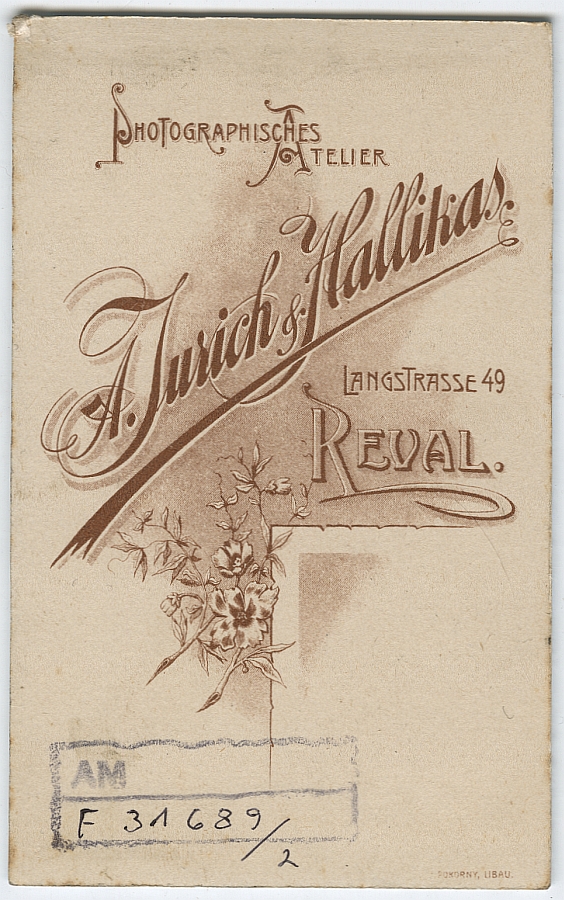 PHOTOGRAPHISCHES
ATELIER
A. Jurich & Hallikas.
LANGSTRASSE 49
REVAL.
AM
F 31689/2
POKORNY, LIBAU.